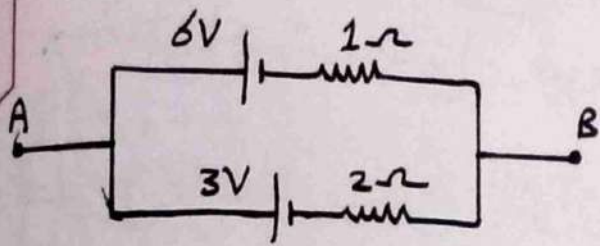 6V 1Ω
A B
3V 2Ω